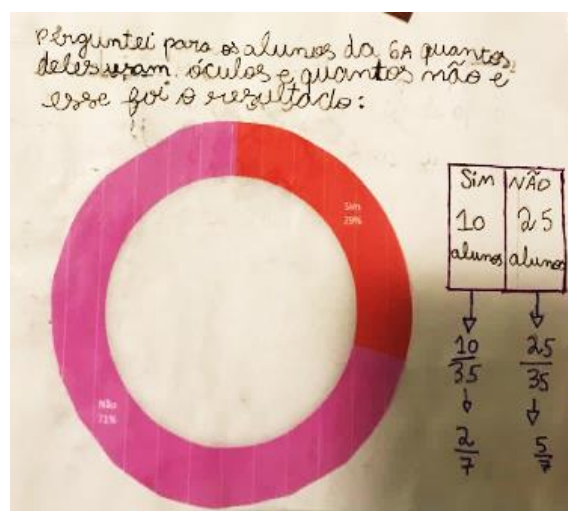 Perguntei para os alunos da 6A quantos
deles usam óculos e quantos não e
esse foi o resultado:
Sim
29%
Não
71%
SIM NÃO
10 25
alunos alunos
10/35 25/35
2/7 5/7